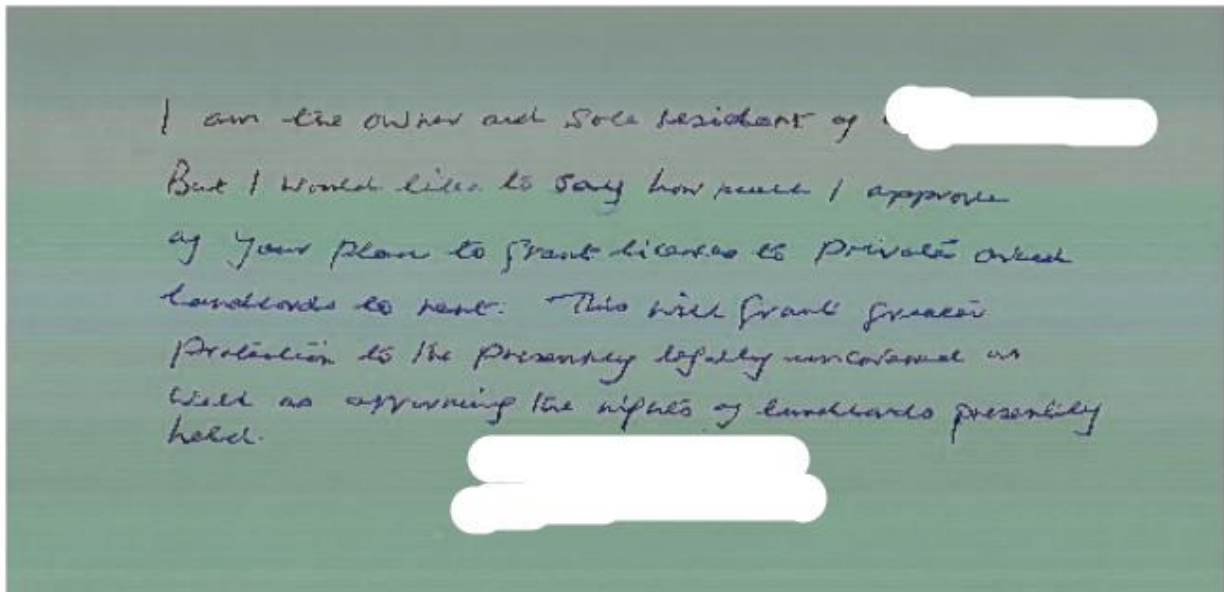 I am the owner and sole resident of
But I would like to say how much I approve
of your plan to grant licences to private
landlords to rent. This will grant greater
protection to the presently legally uncovered as
well as affirming the rights of landlords presently
held.